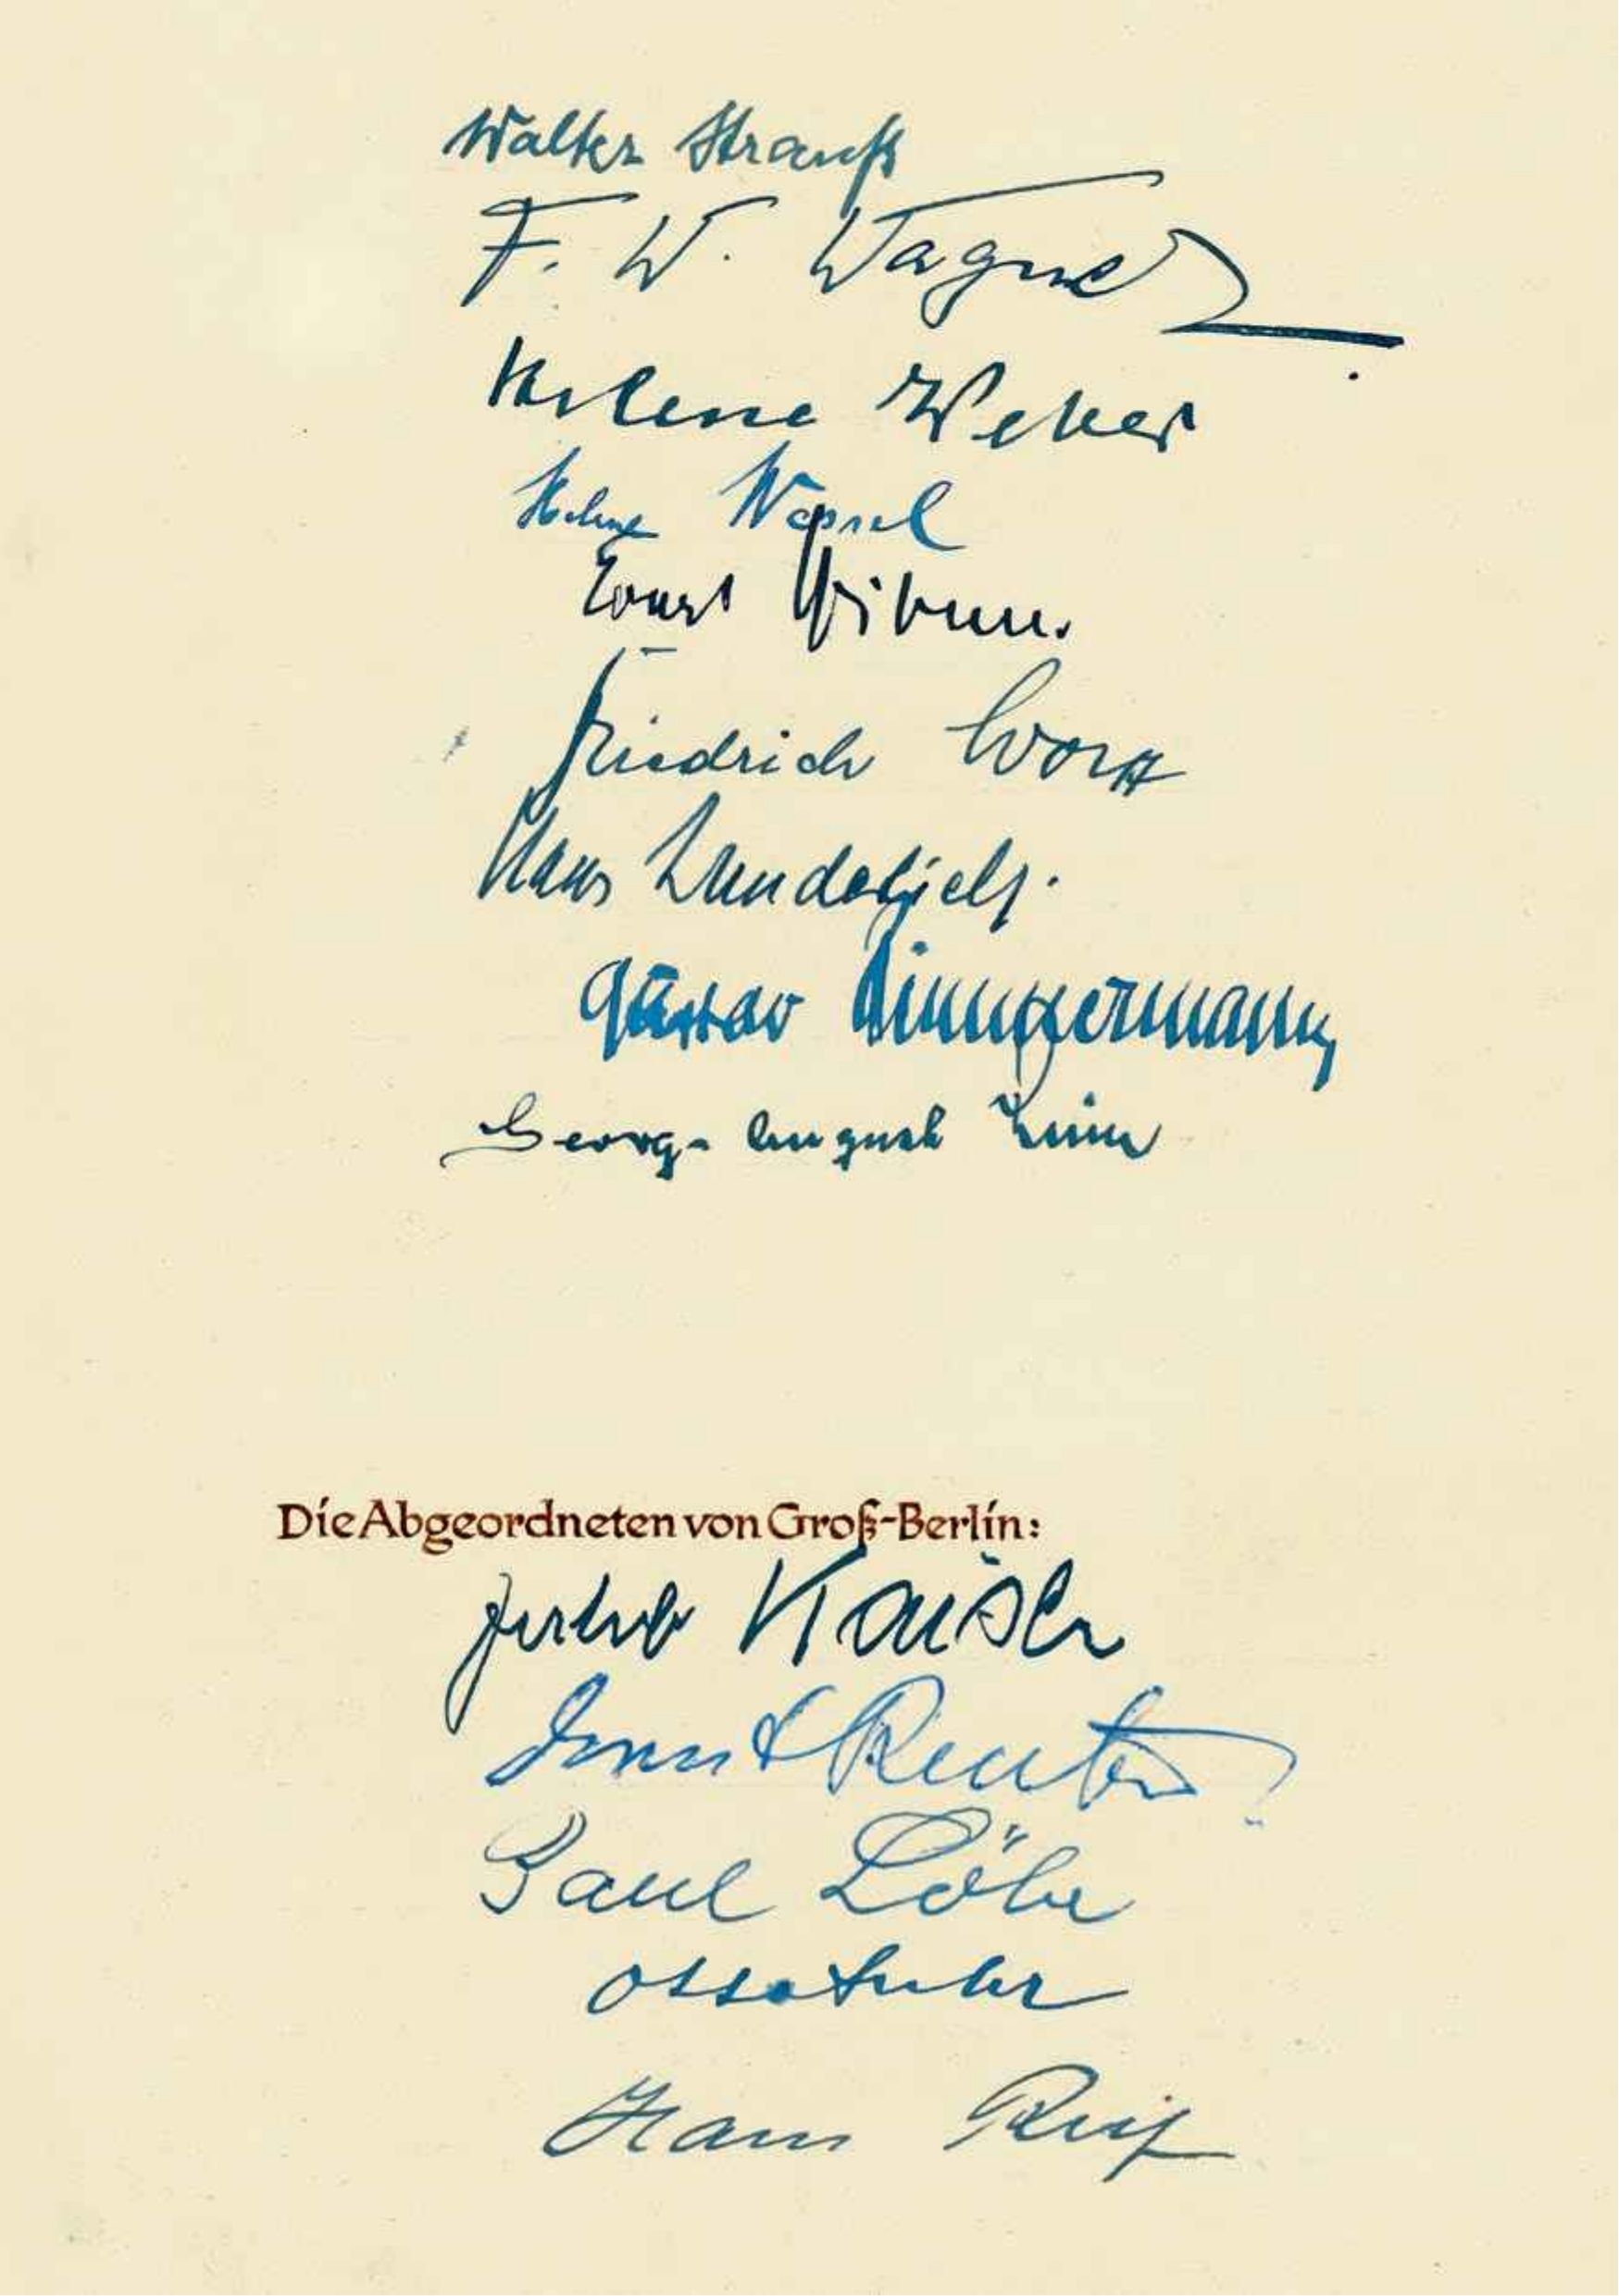 Walter Strauß
F. W. Wagner
Helene Weber
Helene Wessel
Ernst Wirmer.
Friedrich Wolff
Hans Wunderlich.
Gustav Zimmermann
Georg-August Zinn
Die Abgeordneten von Groß-Berlin:
Jakob Kaiser
Ernst Reuter
Paul Löbe
Otto Suhr
Hans Reif